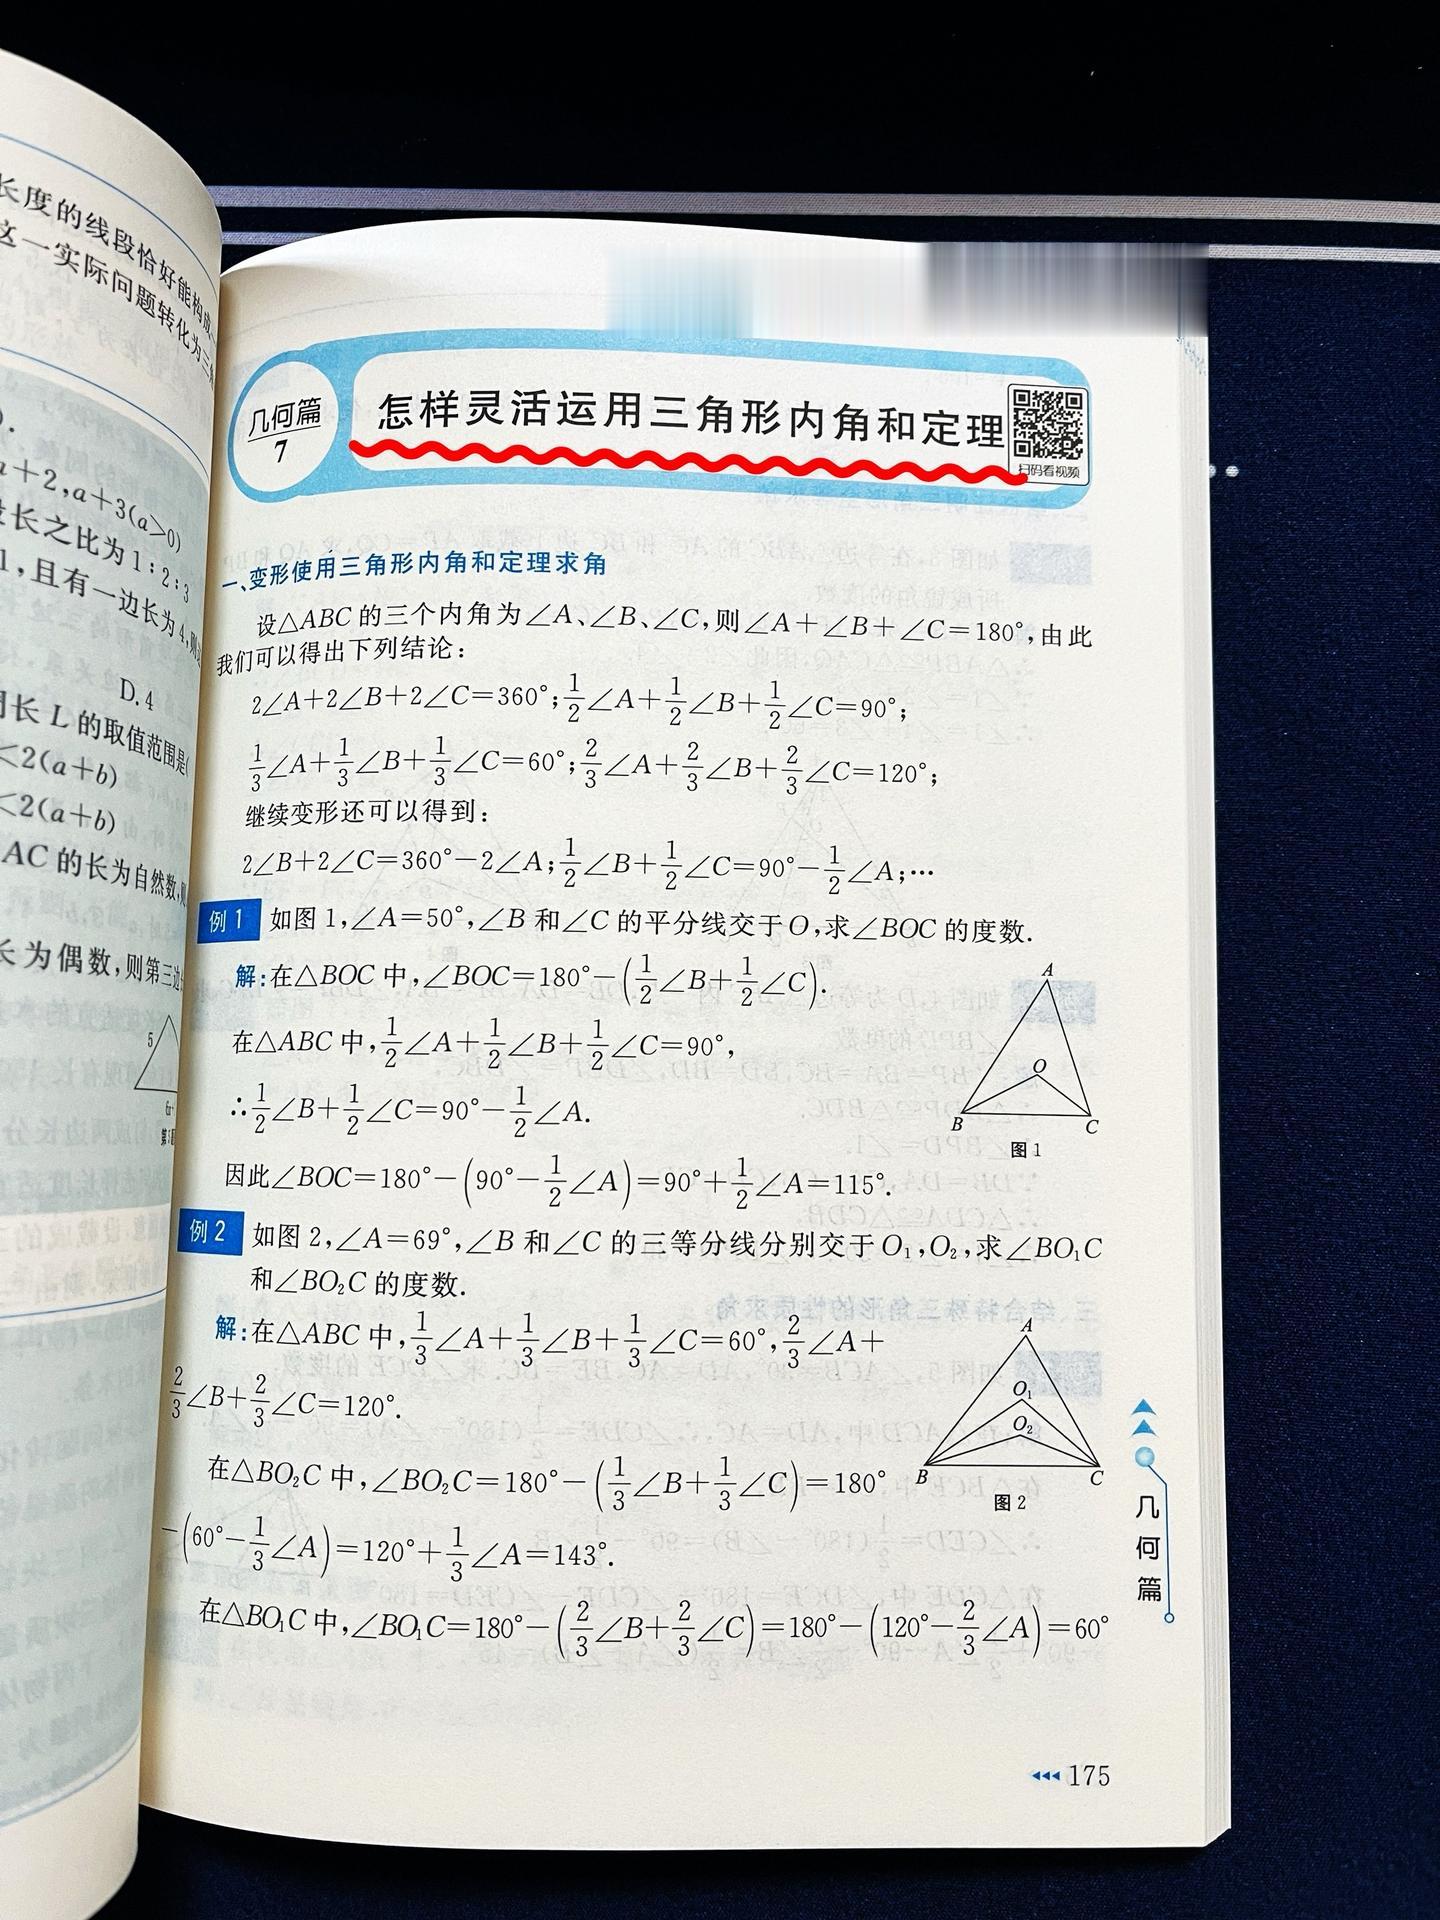 长度的线段恰好能构成
这一实际问题转化为三角
).
a+2,a+3(a>0)
段长之比为1:2:3
1,且有一边长为4,则
D.4
周长L的取值范围是(
<2(a+b)
<2(a+b)
AC的长为自然数,则
长为偶数,则第三边
5
几何篇
7
怎样灵活运用三角形内角和定理
扫码看视频
一、变形使用三角形内角和定理求角
设△ABC的三个内角为∠A、∠B、∠C,则∠A+∠B+∠C=180°,由此
我们可以得出下列结论:
2∠A+2∠B+2∠C=360°;1/2∠A+1/2∠B+1/2∠C=90°;
1/3∠A+1/3∠B+1/3∠C=60°;2/3∠A+2/3∠B+2/3∠C=120°;
继续变形还可以得到:
2∠B+2∠C=360°-2∠A;1/2∠B+1/2∠C=90°-1/2∠A;…
例1 如图1,∠A=50°,∠B和∠C的平分线交于O,求∠BOC的度数.
解:在△BOC中,∠BOC=180°-(1/2∠B+1/2∠C).
在△ABC中,1/2∠A+1/2∠B+1/2∠C=90°,
∴1/2∠B+1/2∠C=90°-1/2∠A.
因此∠BOC=180°-(90°-1/2∠A)=90°+1/2∠A=115°.
A
O
B
C
图1
例2 如图2,∠A=69°,∠B和∠C的三等分线分别交于O₁,O₂,求∠BO₁C
和∠BO₂C的度数.
解:在△ABC中,1/3∠A+1/3∠B+1/3∠C=60°,2/3∠A+
2/3∠B+2/3∠C=120°.
在△BO₂C中,∠BO₂C=180°-(1/3∠B+1/3∠C)=180°
-(60°-1/3∠A)=120°+1/3∠A=143°.
A
O₁
O₂
B
C
图2
在△BO₁C中,∠BO₁C=180°-(2/3∠B+2/3∠C)=180°-(120°-2/3∠A)=60°
几何篇
175